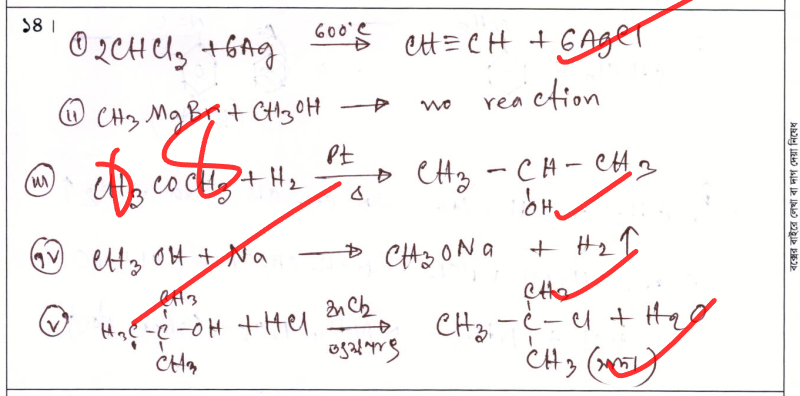 ১৪।
(i) 2CHCl₃ + 6Ag 600°C → CH≡CH + 6AgCl
(ii) CH₃MgBr + CH₃OH → no reaction
(iii) CH₃COCH₃ + H₂ Pt Δ → CH₃ – CH – CH₃
OH
(iv) CH₃OH + Na → CH₃ONa + H₂↑
CH₃ CH₃
(v) H₃C – C – OH + HCl ZnCl₂ → CH₃ – C – Cl + H₂O
CH₃ CH₃ (সাদা)
08
বক্সের বাইরে লেখা বা দাগ দেয়া নিষেধ